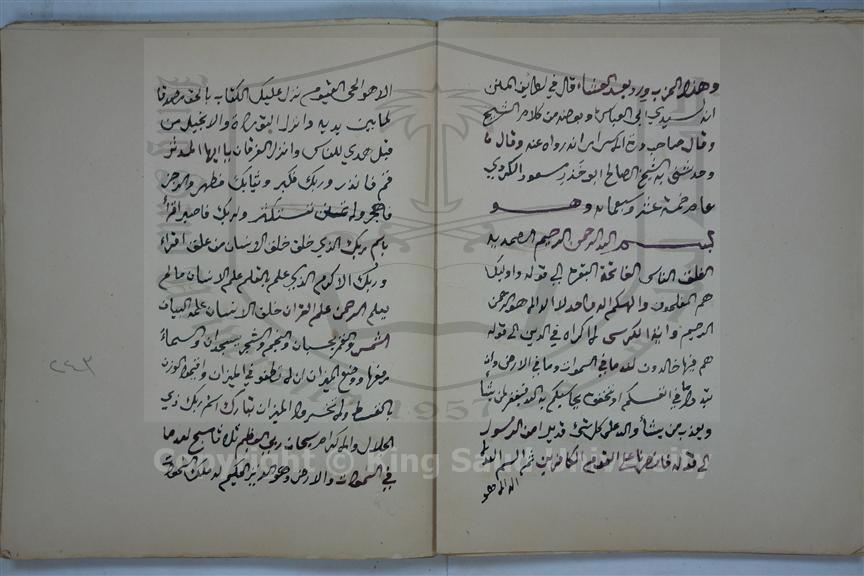 وهذا الحزب ورد بعد العشاء قال في لطائف المنن
انه لسيدي ابي العباس وبعضه من كلام الشيخ
وقال صاحب درة الاسرار انه رواه عنه وقال ما
وحدثني به الشيخ الصالح ابو مسعود الكروي
وهو
بسم الله الرحمن الرحيم الصمدية
الفلق الناس الفاتحة البقرة الى قوله واوليك
هم المفلحون والهكم اله واحد لا اله الا هو الرحمن
الرحيم واية الكرسي لا اكراه في الدين الى قوله
هم فيها خالدون لله ما في السموات وما في الارض وان
تبدوا ما في انفسكم او تخفوه يحاسبكم به الله فيغفر لمن يشأ
ويعذب من يشأ والله على كل شئ قدير امن الرسول
الى قوله فانصرنا على القوم الكافرين ثم الم الله
لا اله الا هو
الا هو الحي القيوم نزل عليك الكتاب بالحق مصدقا
لما بين يديه وانزل التوراة والانجيل من
قبل هدي للناس وانزل الفرقان يا ايها المدثر
قم فانذر وربك فكبر وثيابك فطهر والرجز
فاهجر ولا تمنن تستكثر ولربك فاصبر اقرأ
باسم ربك الذي خلق خلق الانسان من علق اقراء
وربك الاكرم الذي علم بالقلم علم الانسان ما لم
يعلم الرحمن علم القران خلق الانسان علمه البيان
الشمس والقمر بحسبان والنجم والشجر يسجدان والسماء
رفعها ووضع الميزان ان لا تطغو في الميزان واقيموا الوزن
بالقسط ولا تخسروا الميزان تبارك اسم ربك ذي
الجلال والاكرام سبحان ربي العظيم ثلاثا سبح لله ما
في السموات والارض وهو العزيز الحكيم له ملك السموات
٢٤٣
Copyright © King Saud University
1957